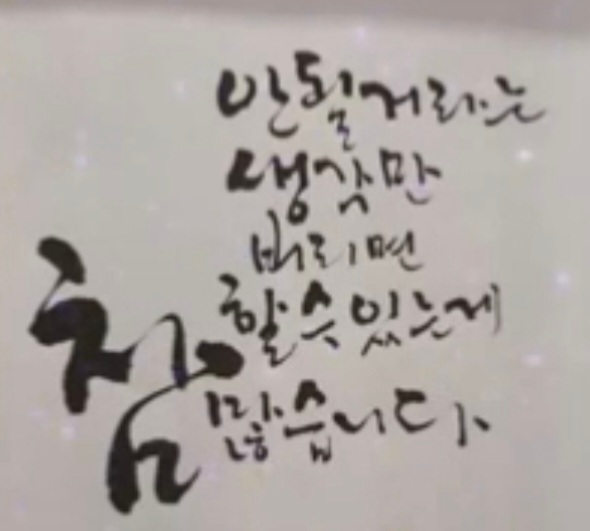 안될거라는
생각만
버리면
할수있는게
참
많습니다